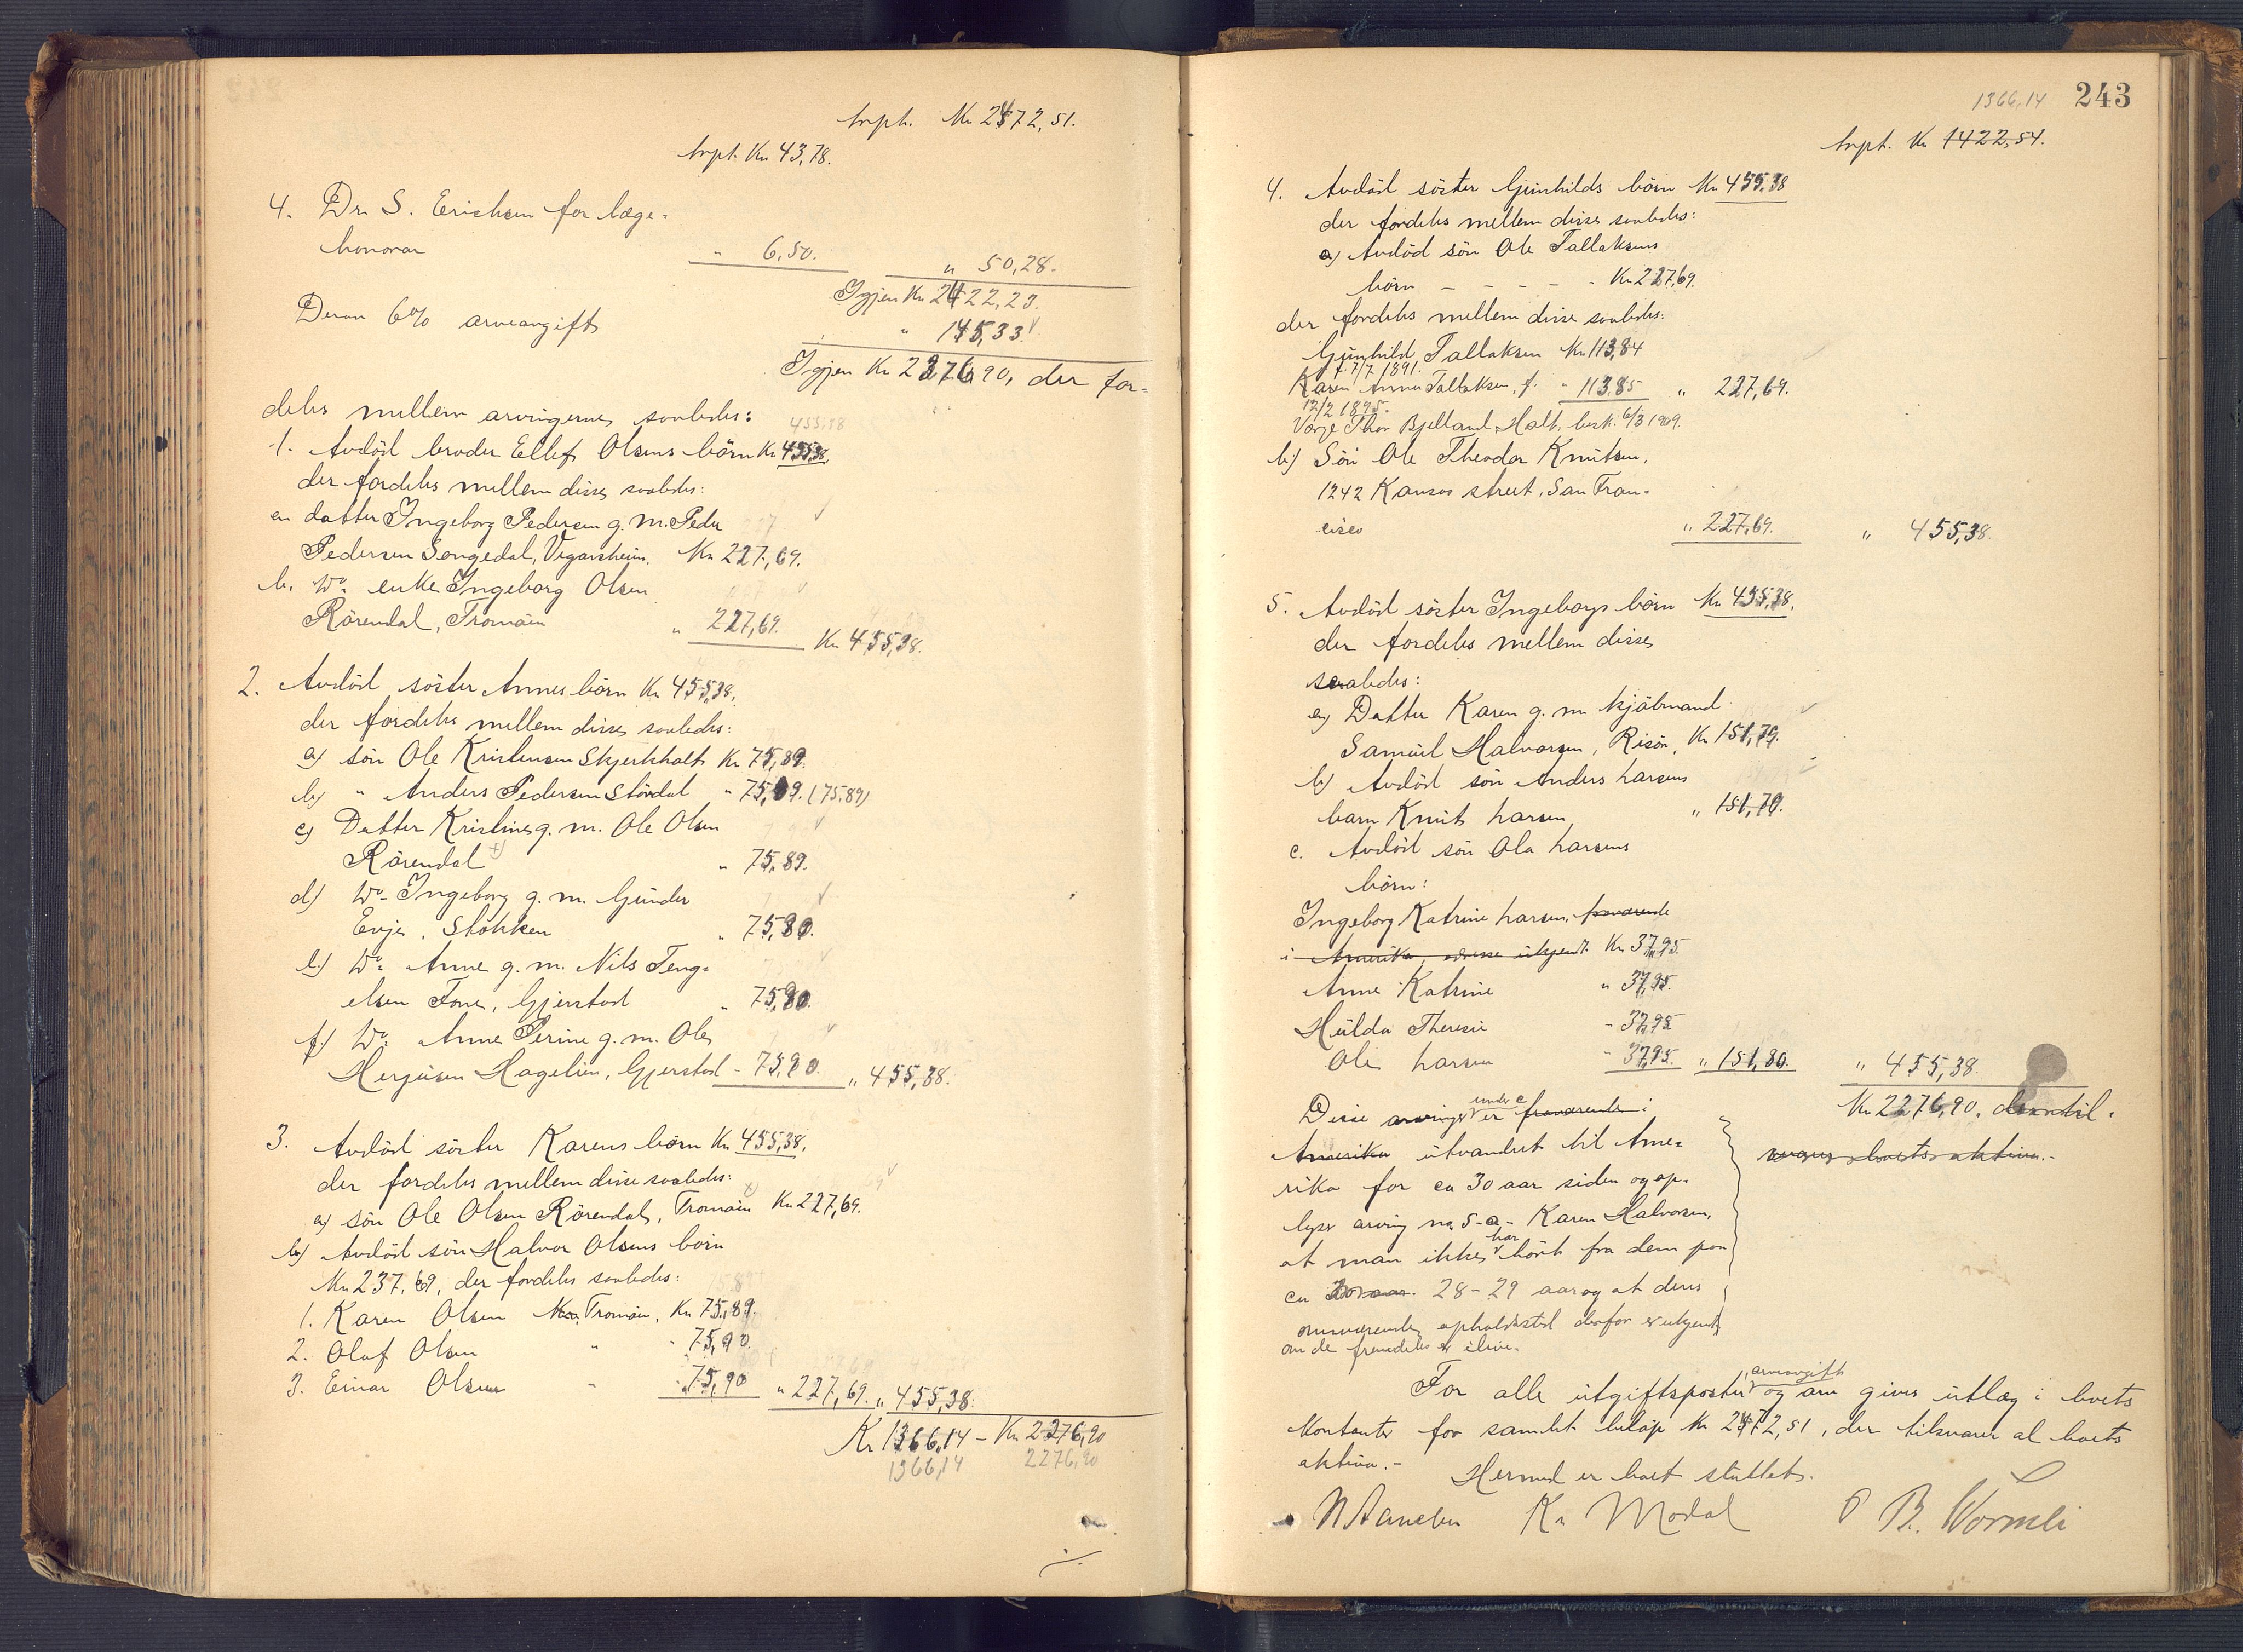 Trpt. Kr 2472,51.
Trpt. Kr 43,78.
4. Dr. S. Erichsen for læge-
honorar " 6,50. " 50,28.
Igjen Kr 2422,23.
Derav 6% arveavgift " 145,33
Igjen Kr 2276,90, der for-
deles mellem arvingerne saaledes:
455,38
1. Avdöd broder Ellef Olsens börn Kr 455,38,
der fordeles mellem disse saaledes:
a datter Ingeborg Pedersen g. m. Peder
Pedersen Songedal, Vegarsheim, Kr 227,69.
b. Do enke Ingeborg Olsen
Rörendal, Tromöen " 227,69. Kr 455,38.
2. Avdöd söster Annes börn Kr 455,38,
der fordeles mellem disse saaledes:
a) sön Ole Kristensen Skjerkholt Kr 75,89.
b) " Anders Pedersen Stövdal " 75,89. (75,89)
c) Datter Kristine g. m. Ole Olsen
Rörendal x) " 75,89.
d) Do Ingeborg g. m. Gunder
Evje, Stokken " 75,90.
e) Do Anne g. m. Nils Teng-
elsen Fone, Gjerstad " 75,90.
f) Do Anne Perine g. m. Ole
Herjusen Hagelien, Gjerstad - 75,90. " 455,38.
3. Avdöd söster Karens börn Kr 455,38,
der fordeles mellem disse saaledes:
a) sön Ole Olsen Rörendal, x) Tromöen Kr 227,69.
b) Avdöd sön Halvor Olsens börn
Kr 237,69, der fordeles saaledes:
1. Karen Olsen Tromöen, Kr 75,89.
2. Olaf Olsen " - 75,90.
3. Einar Olsen - 75,90 " 227,69. " 455,38.
Kr 1366,14 - Kr 2276,90
1366,14 2276,90
1366,14 243
Trpt. Kr 1422,54.
4. Avdöd söster Gunhilds börn Kr 455,38
der fordeles mellem disse saaledes:
a) Avdöd sön Ole Tallaksens
börn - - - - - Kr 227,69.
der fordeles mellem disse saaledes:
Gunhild Tallaksen Kr 113,84
f. 7/7 1891.
Karen Anna Tallaksen, f. " 113,85 " 227,69.
12/2 1895.
Værge Thor Bjelland, Holt, besk. 6/3 1909.
b) Sön Ole Theodor Knutsen,
1242 Kansas street, San Fran-
cisco " 227,69. " 455,38.
5. Avdöd söster Ingeborgs börn Kr 455,38,
der fordeles mellem disse
saaledes:
a) Datter Karen g. m. skjöbmand
Samuel Halvorsen, Risör, Kr 151,79.
b) Avdöd sön Anders Larsens
barn Knut Larsen " 151,79.
c. Avdöd sön Ola Larsens
börn:
Ingeborg Katrine Larsen, fraværende
i Amerika, adresse ukjendt Kr 37,95.
Anne Katrine " 37,95.
Hulda Theresie - 37,95
Ole Larsen - 37,95. " 151,80. " 455,38.
Kr 2276,90, der til-
svarer boets aktiva.-
Disse arvinger under c er fraværende i
Amerika utvandret til Ame-
rika for ca 30 aar siden og op-
lyser arving no. 5-a- Karen Halvorsen,
at man ikke har hört fra dem paa
ca 28-29 aar og at deres
nuværende opholdssted derfor er ukjendt,
om de fremdeles er ilive.
For alle utgiftsposter, arveavgift og arv gives utlæg i boets
kontanter for samlet belöp Kr 2472,51, der tilsvarer al boets
aktiva.-
Hermed er boet sluttet.
N Aanesen Kr Modal P B. Wormeli